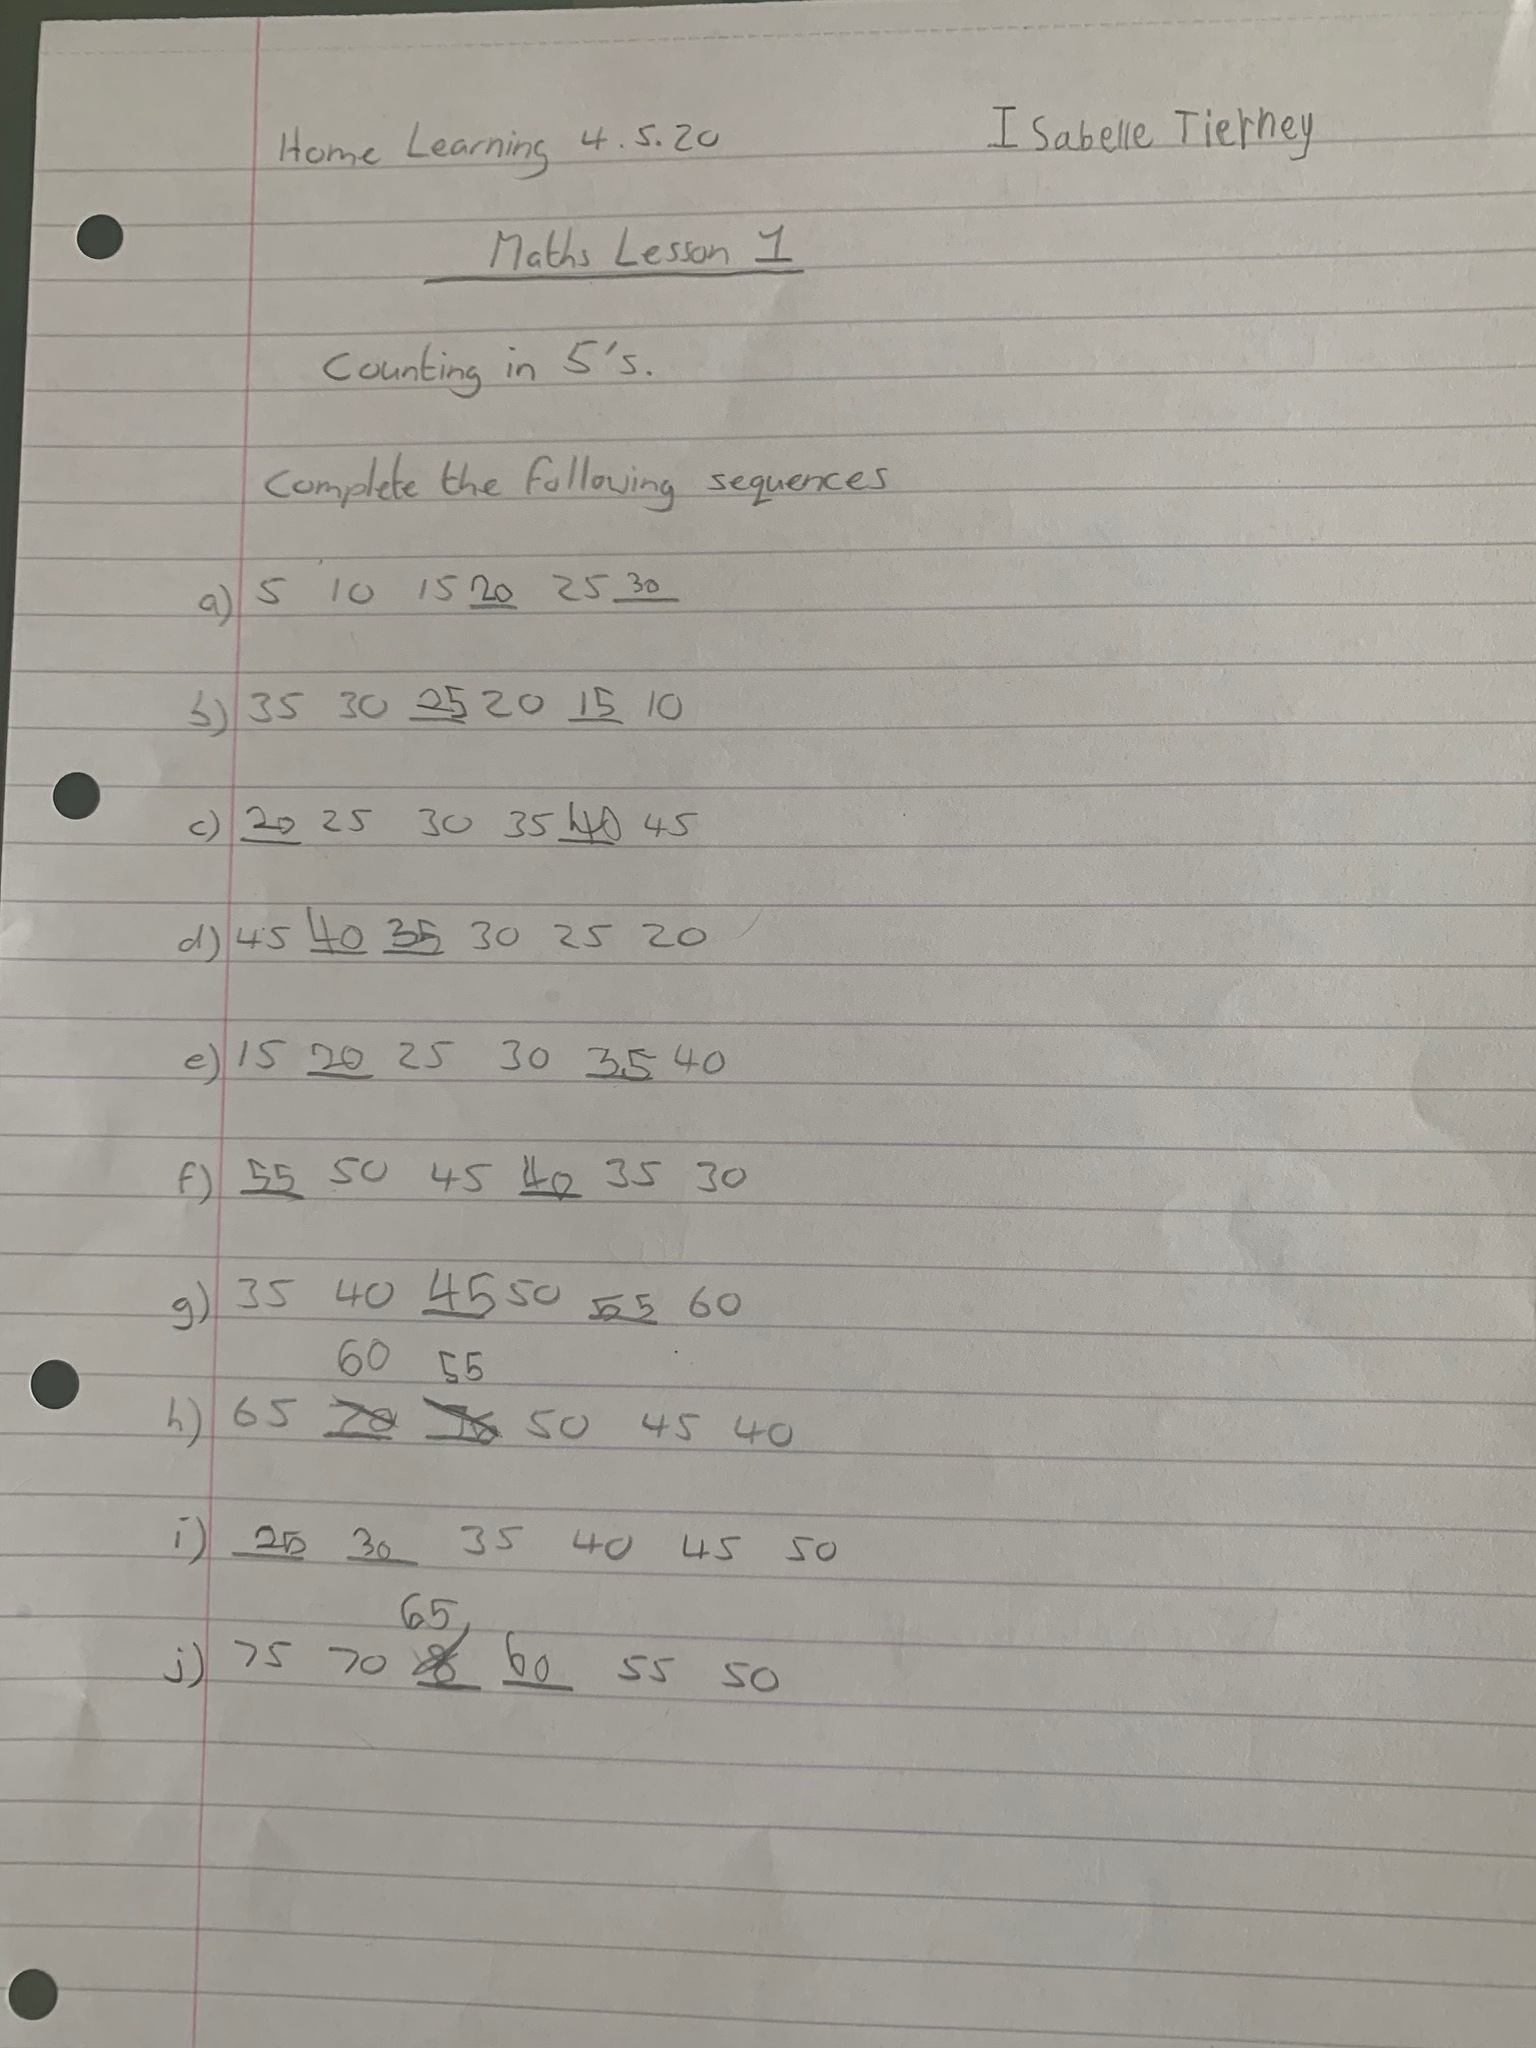 Home Learning 4.5.20 Isabelle Tierney
Maths Lesson 1
Counting in 5's.
Complete the following sequences
a) 5 10 15 20 25 30
b) 35 30 25 20 15 10
c) 20 25 30 35 40 45
d) 45 40 35 30 25 20
e) 15 20 25 30 35 40
f) 55 50 45 40 35 30
g) 35 40 45 50 55 60
60 55
h) 65 70 50 45 40
i) 25 30 35 40 45 50
65
j) 75 70 60 55 50